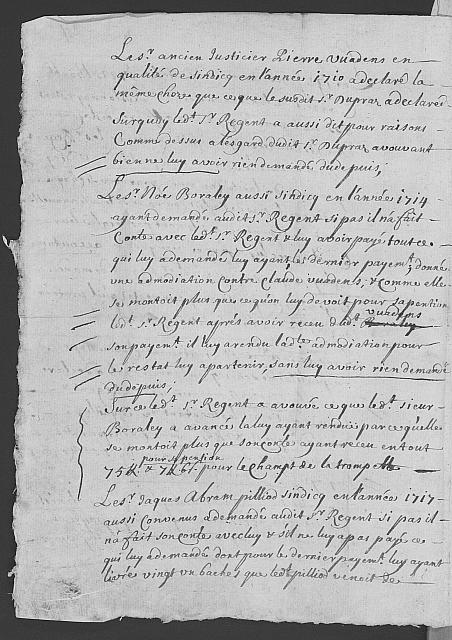 Le sr. ancien Justicier Pierre vuadens en
qualité de sindicq en l'année 1710 a declaré la
même chose que ce que le susdit sr. Dupraz a declaré;
surquoy ledt. sr. Regent a aussi dit pour raisons
Comme dessus a lesgard dudit sr. Dupraz avouvant
bien ne luy avoir rien demandé du depuis;
Le sr. Noé Boraley aussi sindicq en l'année 1714
ayant demandé audit sr. Regent si pas il na fait
Conte avec ledt. sr. Regent & luy avoir payé tout ce
qui luy a demandé luy ayant le dernier payemt. donné
vne admodiation Contre Claude vuadens; & Comme elle
se montoit plus que ce qu'on luy devoit pour sa pention
ledt. sr. Regent aprés avoir receu dudt. vuadens
son payemt. il luy a rendu ladte. admodiation pour
le restat luy apartenir, sans luy avoir rien demandé
du depuis;
Sur ce ledt. sr. Regent a avoüé ce que ledt. sieur
Boraley a avancé la luy ayant rendüe parce qu'elle
se montoit plus que son conte ayant receu en tout
pour sa pension
75 & pour le Champt de la trompette
Le sr. Jaques Abram pilliod sindicq en l'année 1717
aussi Convenus a demandé audit sr. Regent si pas il
na fait son conte avec luy & s'il ne luy a pas payé ce
qui luy a demandé dont pour le dernier payemt. luy ayant
livré vingt vn baches que ledt. pilliod venoit de